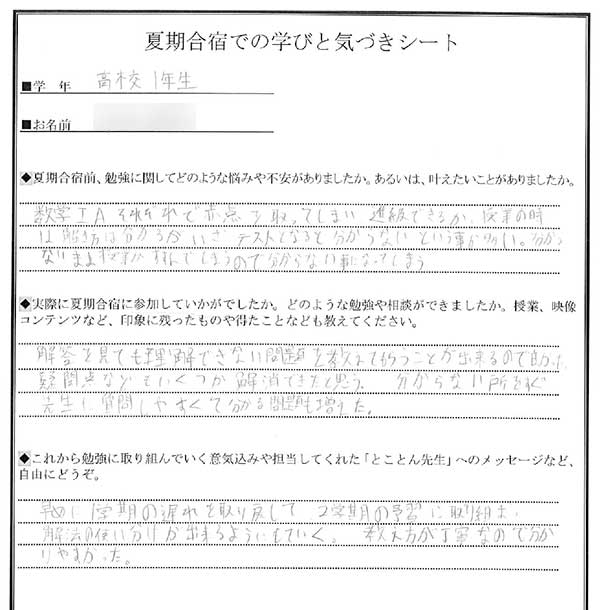 夏期合宿での学びと気づきシート
■学 年 高校1年生
■お名前
◆夏期合宿前、勉強に関してどのような悩みや不安がありましたか。あるいは、叶えたいことがありましたか。
数学ⅠAそれぞれで赤点を取ってしまい進級できるか、授業の時
は解き方は分かるがいざテストとなると分からないという事が多い。分から
ないまま授業がすすんでしまうので分からない事になってしまう
◆実際に夏期合宿に参加していかがでしたか。どのような勉強や相談ができましたか。授業、映像
コンテンツなど、印象に残ったものや得たことなども教えてください。
解答を見ても理解できない問題を教えてもらうことが出来るので助かった
疑問点などもいくつか解消できたと思う。 分からない所をすぐ
先生に質問しやすくて分かる問題も増えた。
◆これから勉強に取り組んでいく意気込みや担当してくれた「とことん先生」へのメッセージなど、
自由にどうぞ。
早めに1学期の遅れを取り戻して2学期の予習に取り組む
解法の使い分けが出来るようにもしていく。 教え方が丁寧なので分か
りやすかった。